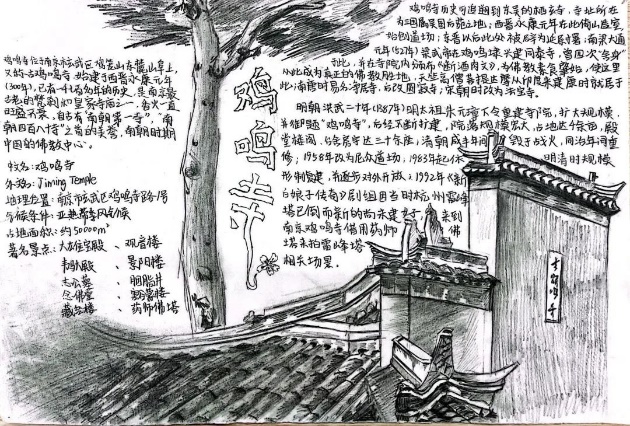 鸡鸣寺位于南京市玄武区鸡笼山东麓山阜上,
又称古鸡鸣寺,始建于西晋永康元年
(300年),已有一千七百多年的历史,是南京最
古老的梵刹和皇家寺庙之一,香火一直
旺盛不衰,自古有"南朝第一寺","南
朝四百八十寺"之首的美誉,南朝时期
中国的佛教中心。
中文名:鸡鸣寺
外文名:Jiming Temple
地理位置:南京市玄武区鸡鸣寺路1号
气候条件:亚热带季风气候
占地面积:约50000m²
著名景点:大雄宝殿、观音楼
韦驮殿、景阳楼
志公墓、胭脂井
念佛堂、豁蒙楼
藏经楼、药师佛塔
鸡鸣寺
鸡鸣寺历史可追溯到东吴的栖玄寺,寺址所在
为三国属吴国后苑之地;西晋永康元年在此倚山造室,
始创道场;东晋以后此处被辟为廷尉署;南梁大通
元年(527年)梁武帝在鸡鸣埭兴建同泰寺,曾四次"舍身"
于此,并在寺院内颁布《断酒肉文》,为佛教素食肇始,使这里
从此成为真正的佛教胜地
此;南唐时易名净居寺,后改圆寂寺;宋朝时改为法宝寺。
明朝洪武二十年(1387年)明太祖朱元璋下令重建寺院,扩大规模,
并御题"鸡鸣寺",后经不断扩建,院落规模宏大,占地达千余亩,殿
堂楼阁、台舍房宇达三十余座;清朝咸丰年间毁于战火,同治年间重
修;1958年改为尼众道场,1983年起依明清时规模
形制复建,并逐步对外开放;1992年《新
白娘子传奇》剧组因当时杭州雷峰
塔已倒而新的尚未建,来到
南京鸡鸣寺借用药师佛
塔来拍雷峰塔
相关场景。
古鸡鸣寺